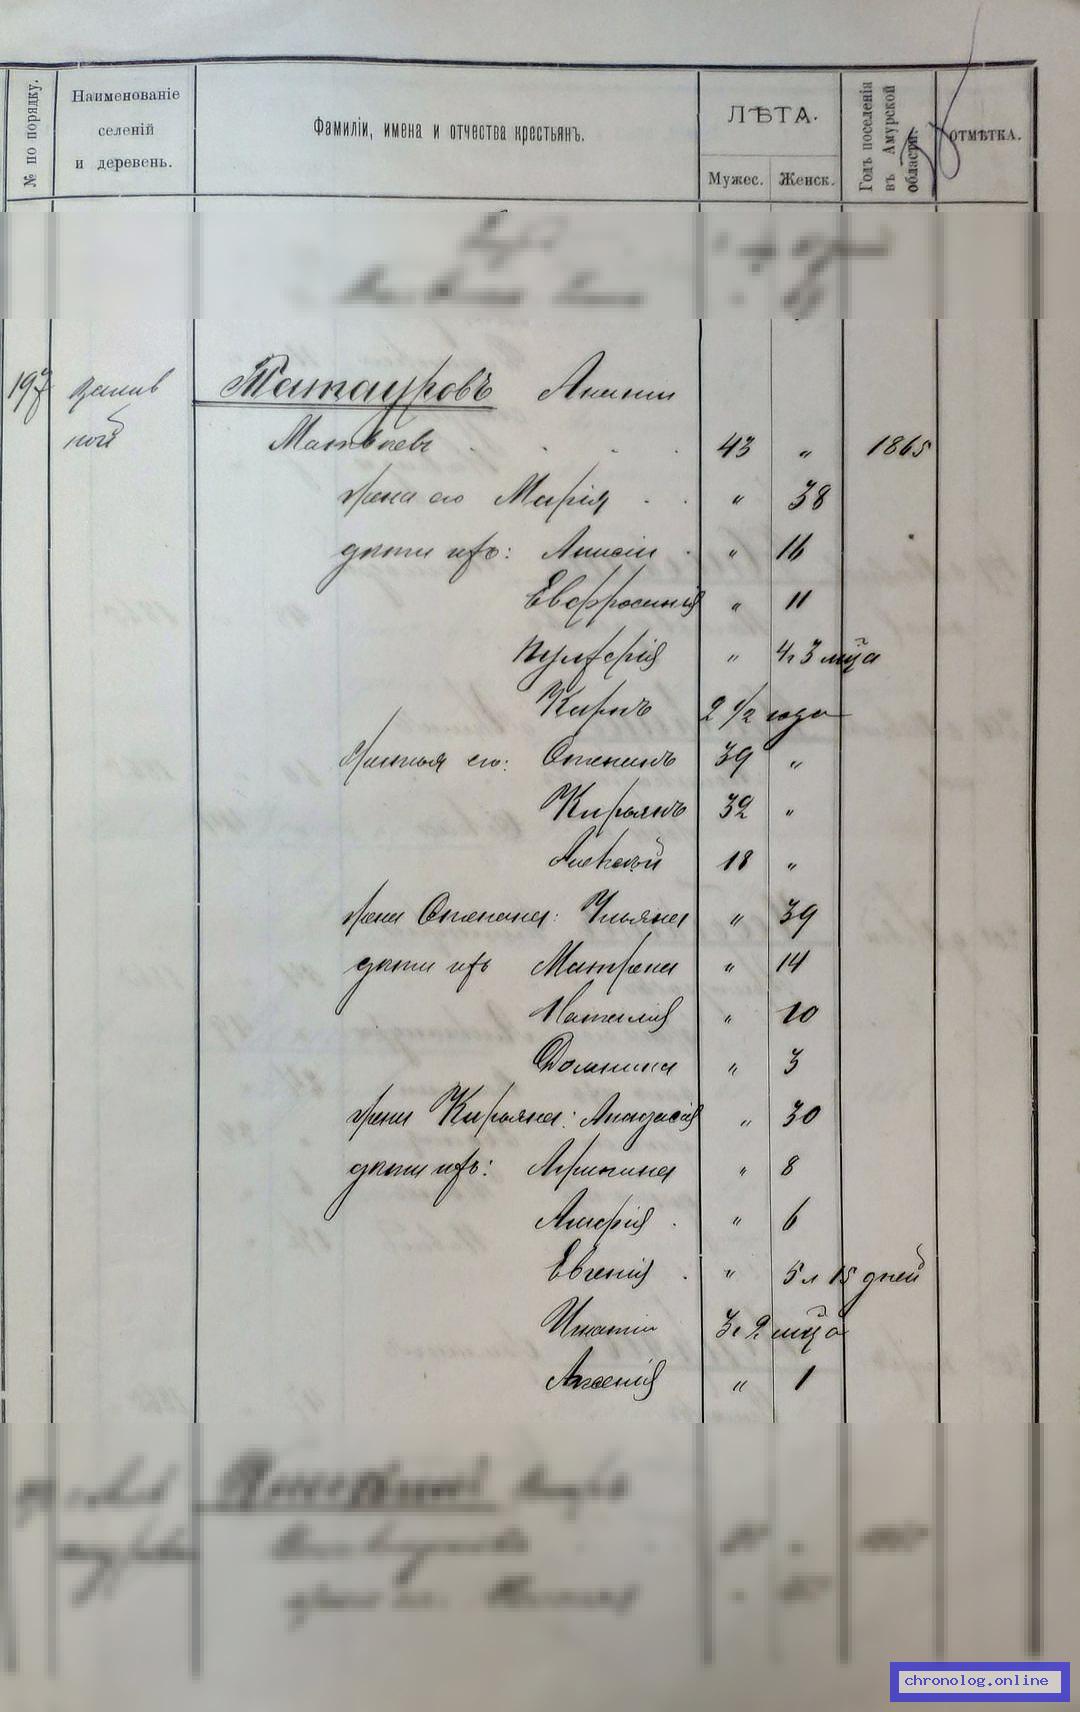 № по порядку.
Наименованіе
селеній
и деревень.
Фамиліи, имена и отчества крестьянъ.
ЛѢТА.
Мужес. Женск.
Годъ поселенія
въ Амурской
области.
ОТМѢТКА.
197 Татауровъ Ананій
ной Матвѣевъ . . . . 43 „ 1865
жена его Марія . . „ 38
дѣти ихъ: Анисія . „ 16
Евфросинія „ 11
Пульхерія „ 4 г 3 мца
Киръ 2 1/2 года
братья его: Степанъ 39 „
Кирьянъ 32 „
Алексѣй 18 „
жена Степана: Ульяна „ 39
дѣти ихъ Матрена „ 14
Наталія „ 10
Домнина „ 3
жена Кирьяна: Анастасія „ 30
дѣти ихъ: Агрипина „ 8
„ 6
Евгенія . „ 5 л 15 дней
Игнатій 3 г 2 мца
Аксенія „ 1
chronolog.online